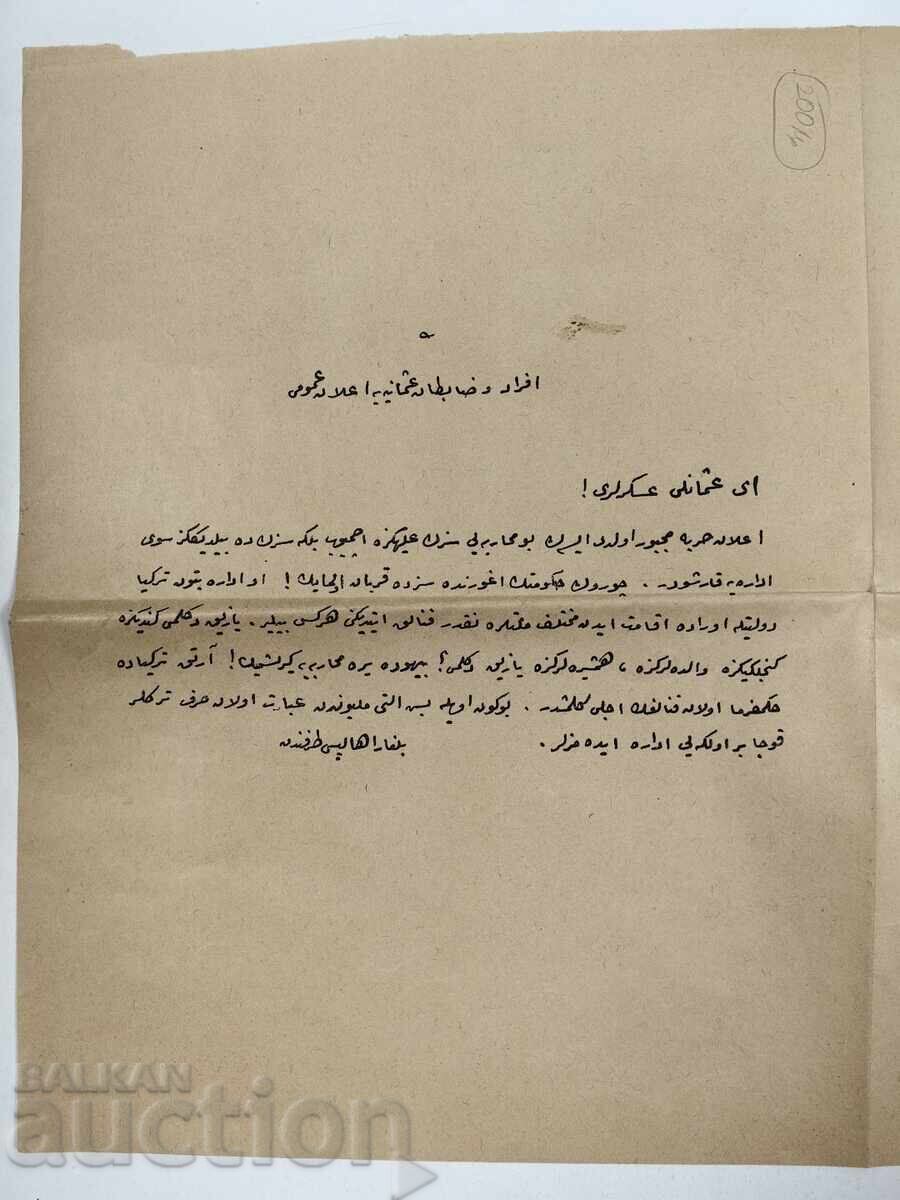 2004
افراد و ضابطان عثمانیه یه اعلان عمومی
ای عثمانلی عسکرلری!
اعلان حربه مجبور اولدی ایسه ك بو محاربه یی سزك علیهكزه آچمیوب بلكه سزك ده بیلدیككز سوی
اداره یه قارشودر. چوروك حكومتك اغورنده سزده قربان اولمایك! او اداره بتون تركیا
دولتیله اوراده اقامت ایدن مختلف ملتلره نقدر فنالق ایتدیكنی هركس بیلیر. یازیق دكلمی كندیكزه
كنجلكیكزه والده لركزه، همشیره لركزه یازیق دكلمی؟ بیهوده یره محاربه یه كیریشمیك! آرتق تركیاده
حكمفرما اولان فنالغك اجلی كلمشدر. بوكون اویله بش التی ملیوندن عبارت اولان حرف تركلر
قوجا بر اولكه یی اداره ایده مزلر. بلغار اهالیسی طرفندن
BALKAN
auction